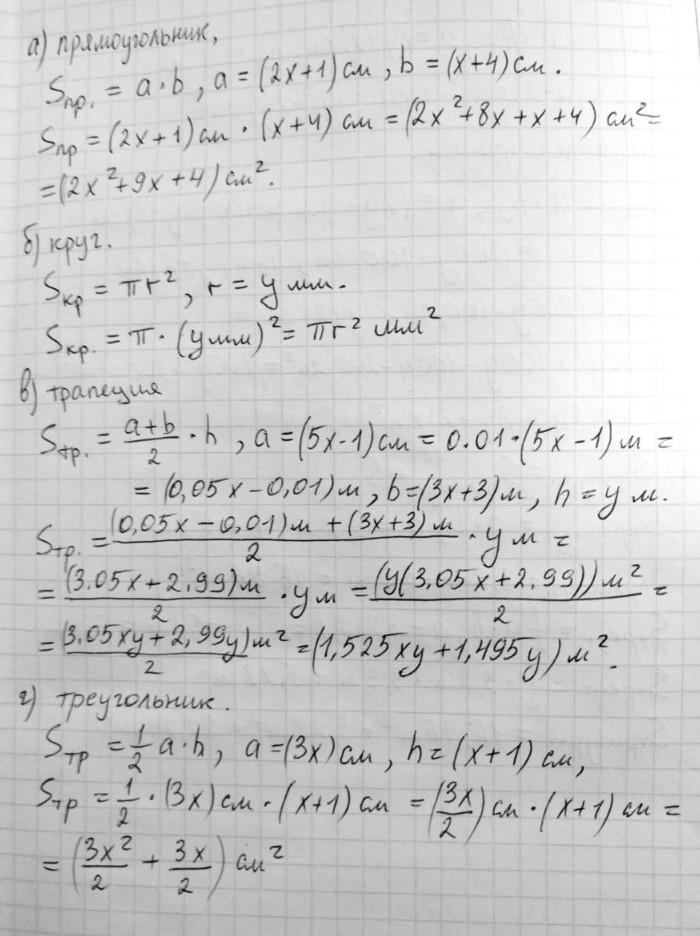 а) прямоугольник,
Sпр. = a · b , a = (2x+1) см , b = (x+4) см .
Sпр = (2x+1) см · (x+4) см = (2x²+8x+x+4) см² =
= (2x²+9x+4) см².
б) круг.
Sкр = πr² , r = y мм.
Sкр. = π · (y мм)² = πr² мм²
в) трапеция
Sтр. = (a+b)/2 · h , a = (5x-1) см = 0.01·(5x-1) м =
= (0,05x-0,01) м , b=(3x+3) м , h = y м.
Sтр. = ((0,05x-0,01) м + (3x+3) м)/2 · y м =
= ((3.05x+2,99) м)/2 · y м = ((y(3,05x+2,99)) м²)/2 =
= ((3.05xy+2,99y) м²)/2 = (1,525xy+1,495y) м².
г) треугольник.
Sтр = 1/2 a·h , a = (3x) см , h = (x+1) см ,
Sтр = 1/2 · (3x) см · (x+1) см = (3x/2) см · (x+1) см =
= (3x²/2 + 3x/2) см²